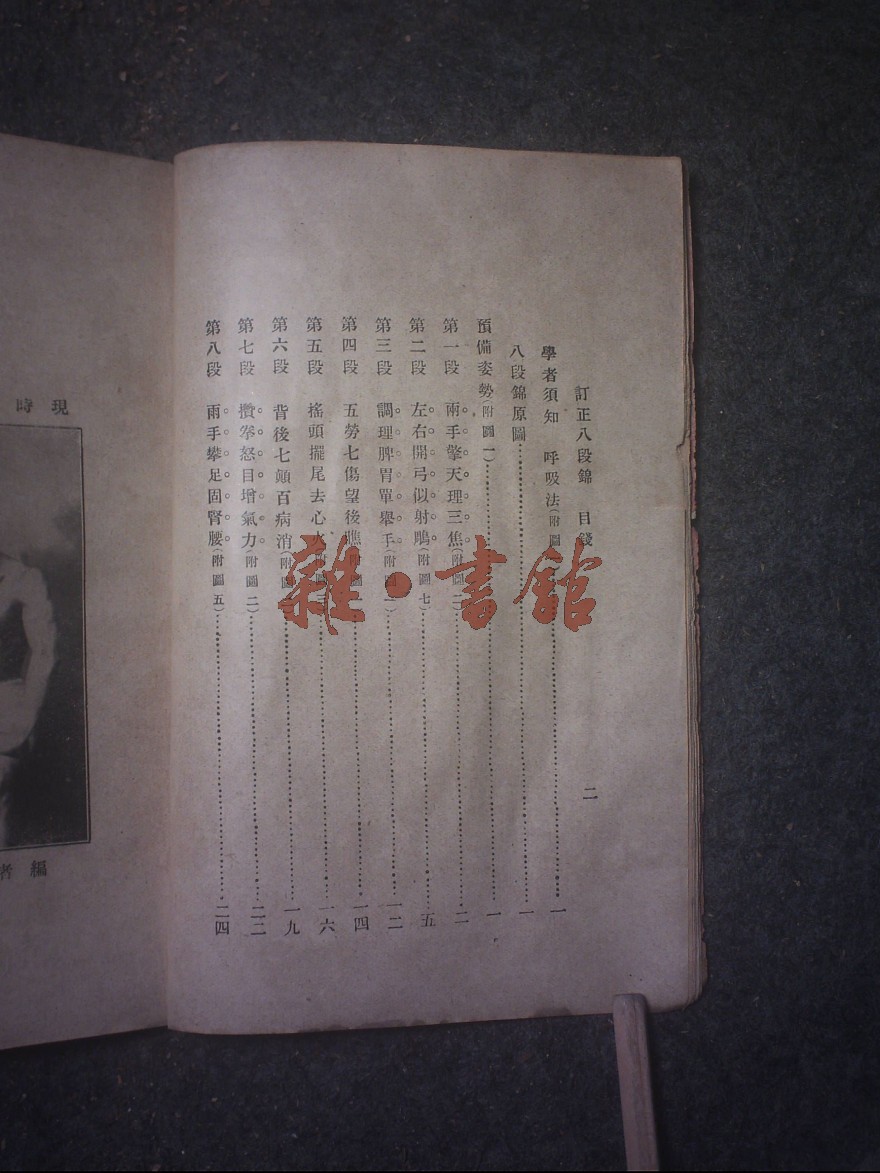 訂正八段錦　目錄　二
學者須知　呼吸法(附圖…………一
八段錦原圖…………一
預備姿勢(附圖一)…………一
第一段　兩手擎天理三焦(附圖二)…………二
第二段　左右開弓似射鵰(附圖七)…………五
第三段　調理脾胃單舉手(附圖一)…………一二
第四段　五勞七傷望後瞧(附圖…………一四
第五段　搖頭擺尾去心火(附圖…………一六
第六段　背後七顛百病消(附圖…………一九
第七段　攢拳怒目增氣力(附圖二)…………二三
第八段　兩手攀足固腎腰(附圖五)…………二四
現時
編者
雜·書館